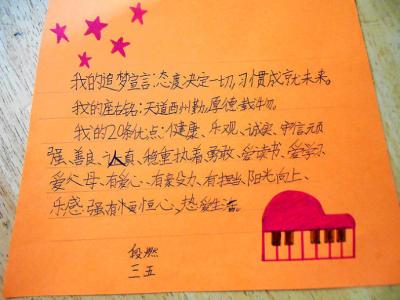 我的追梦宣言:态度决定一切,习惯成就未来。
我的座右铭:天道酬勤,厚德载物。
我的20条优点:健康、乐观、诚实、守信、顽
强、善良、认真、稳重、执着、勇敢、爱读书、爱学习、
爱父母、有爱心、有毅力、有担当、阳光向上、
乐感强、有恒心、热爱生活。
段燃
三五